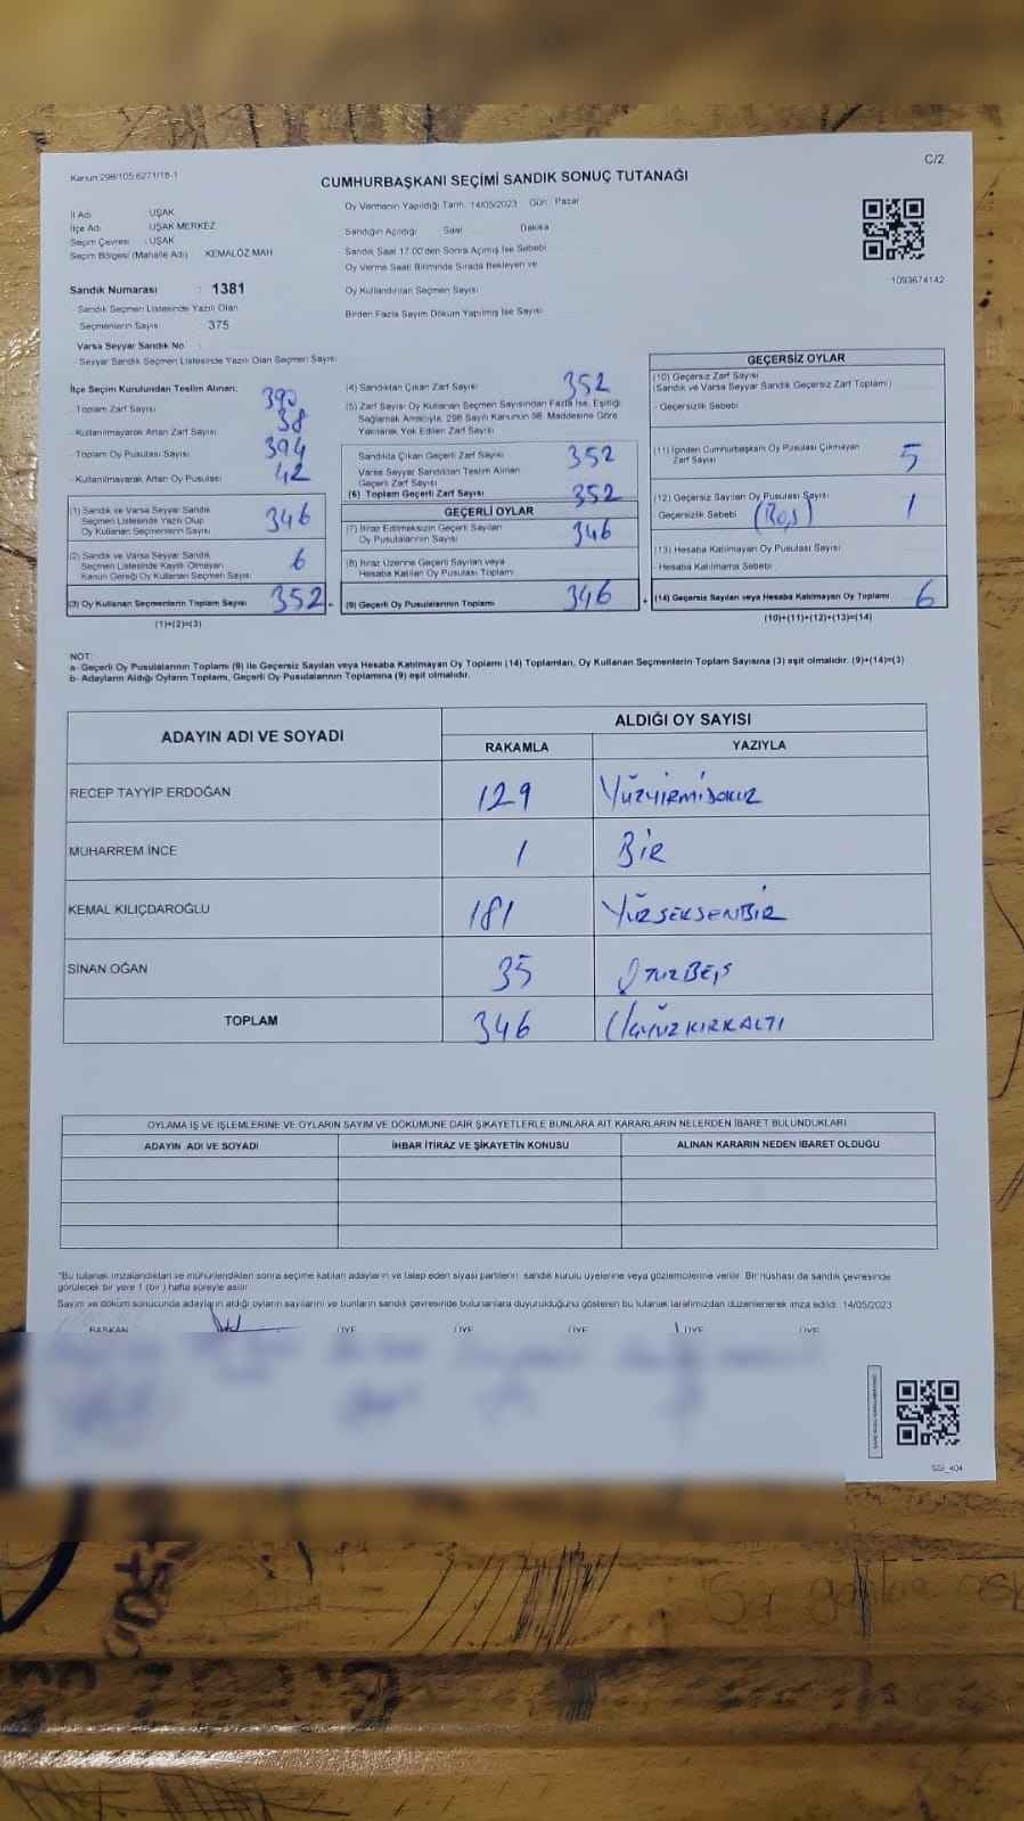 Kanun 298/105 6271/18-1
C/2
CUMHURBAŞKANI SEÇİMİ SANDIK SONUÇ TUTANAĞI
İl Adı : UŞAK
İlçe Adı : UŞAK MERKEZ
Seçim Çevresi : UŞAK
Seçim Bölgesi (Mahalle Adı) KEMALÖZ MAH
Sandık Numarası : 1381
Sandık Seçmen Listesinde Yazılı Olan
Seçmenlerin Sayısı 375
Varsa Seyyar Sandık No
- Seyyar Sandık Seçmen Listesinde Yazılı Olan Seçmen Sayısı
Oy Vermenin Yapıldığı Tarih: 14/05/2023 Gün: Pazar
Sandığın Açıldığı Saat Dakika
Sandık Saat 17:00'den Sonra Açılmış İse Sebebi
Oy Verme Saati Bitiminde Sırada Bekleyen ve
Oy Kullandırılan Seçmen Sayısı
Birden Fazla Sayım Döküm Yapılmış İse Sayısı
1093674142
İlçe Seçim Kurulundan Teslim Alınan:
- Toplam Zarf Sayısı 390
- Kullanılmayarak Artan Zarf Sayısı 38
- Toplam Oy Pusulası Sayısı 394
- Kullanılmayarak Artan Oy Pusulası 42
(1) Sandık ve Varsa Seyyar Sandık
Seçmen Listesinde Yazılı Olup
Oy Kullanan Seçmenlerin Sayısı 346
(2) Sandık ve Varsa Seyyar Sandık
Seçmen Listesinde Kayıtlı Olmayan
Kanun Gereği Oy Kullanan Seçmen Sayısı 6
(3) Oy Kullanan Seçmenlerin Toplam Sayısı 352
(1)+(2)=(3)
(4) Sandıktan Çıkan Zarf Sayısı 352
(5) Zarf Sayısı Oy Kullanan Seçmen Sayısından Fazla İse, Eşitliği
Sağlamak Amacıyla, 298 Sayılı Kanunun 98. Maddesine Göre
Yakılarak Yok Edilen Zarf Sayısı
Sandıkta Çıkan Geçerli Zarf Sayısı 352
Varsa Seyyar Sandıktan Teslim Alınan
Geçerli Zarf Sayısı
(6) Toplam Geçerli Zarf Sayısı 352
GEÇERLİ OYLAR
(7) İtiraz Edilmeksizin Geçerli Sayılan
Oy Pusulalarının Sayısı 346
(8) İtiraz Üzerine Geçerli Sayılan veya
Hesaba Katılan Oy Pusulası Toplamı
(9) Geçerli Oy Pusulalarının Toplamı 346
GEÇERSİZ OYLAR
(10) Geçersiz Zarf Sayısı
(Sandık ve Varsa Seyyar Sandık Geçersiz Zarf Toplamı)
- Geçersizlik Sebebi
(11) İçinden Cumhurbaşkanı Oy Pusulası Çıkmayan
Zarf Sayısı 5
(12) Geçersiz Sayılan Oy Pusulası Sayısı 1
Geçersizlik Sebebi (Boş)
(13) Hesaba Katılmayan Oy Pusulası Sayısı
- Hesaba Katılmama Sebebi
(14) Geçersiz Sayılan veya Hesaba Katılmayan Oy Toplamı 6
(10)+(11)+(12)+(13)=(14)
NOT:
a- Geçerli Oy Pusulalarının Toplamı (9) ile Geçersiz Sayılan veya Hesaba Katılmayan Oy Toplamı (14) Toplamları, Oy Kullanan Seçmenlerin Toplam Sayısına (3) eşit olmalıdır. (9)+(14)=(3)
b- Adayların Aldığı Oyların Toplamı, Geçerli Oy Pusulalarının Toplamına (9) eşit olmalıdır.
ADAYIN ADI VE SOYADI
ALDIĞI OY SAYISI
RAKAMLA YAZIYLA
RECEP TAYYİP ERDOĞAN 129 YÜZYİRMİDOKUZ
MUHARREM İNCE 1 BİR
KEMAL KILIÇDAROĞLU 181 YÜZSEKSENBİR
SİNAN OĞAN 35 OTUZBEŞ
TOPLAM 346 ÜÇYÜZKIRKALTI
OYLAMA İŞ VE İŞLEMLERİNE VE OYLARIN SAYIM VE DÖKÜMÜNE DAİR ŞİKAYETLERLE BUNLARA AİT KARARLARIN NELERDEN İBARET BULUNDUKLARI
ADAYIN ADI VE SOYADI İHBAR İTİRAZ VE ŞİKAYETİN KONUSU ALINAN KARARIN NEDEN İBARET OLDUĞU
"Bu tutanak imzalandıktan ve mühürlendikten sonra seçime katılan adayların ve talep eden siyasi partilerin sandık kurulu üyelerine veya gözlemcilerine verilir. Bir nüshası da sandık çevresinde
görülecek bir yere 1 (bir) hafta süreyle asılır
Sayım ve döküm sonucunda adayların aldığı oyların sayılarını ve bunların sandık çevresinde bulunanlara duyurulduğunu gösteren bu tutanak tarafımızdan düzenlenerek imza edildi. 14/05/2023
BAŞKAN ÜYE ÜYE ÜYE ÜYE ÜYE